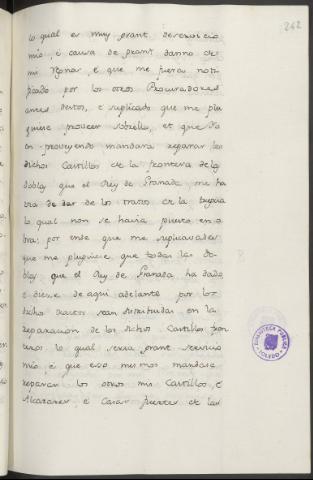 262
lo qual es muy grant deservicio
mio, é causa de grant danno de
mis Rgnos, é que me fuera noti-
ficado por los otros Procuradores
antes destos, é suplicado que me plu-
guiese proveer sobrello, et que Yo
en proveyendo mandara reparar los
dichos Castillos de la frontera de las
doblas que el Rey de Granada me ha
bia de dar de los tratos de la tregua
lo qual non se havia puesto en o
bra; por ende que me suplicavades
que me pluguiese que todas las do-
blas que el Rey de Granada ha dado
é diese de aqui adelante por los
dichos tratos sean distribuidas en la
reparacion de los dichos Castillos fron
teros lo qual seria grant servicio
mio, é que eso mesmo mandase
reparar los otros mis Castillos, é
Alcazares, é Casas fuertes de las
BIBLIOTECA PUBLICA
TOLEDO